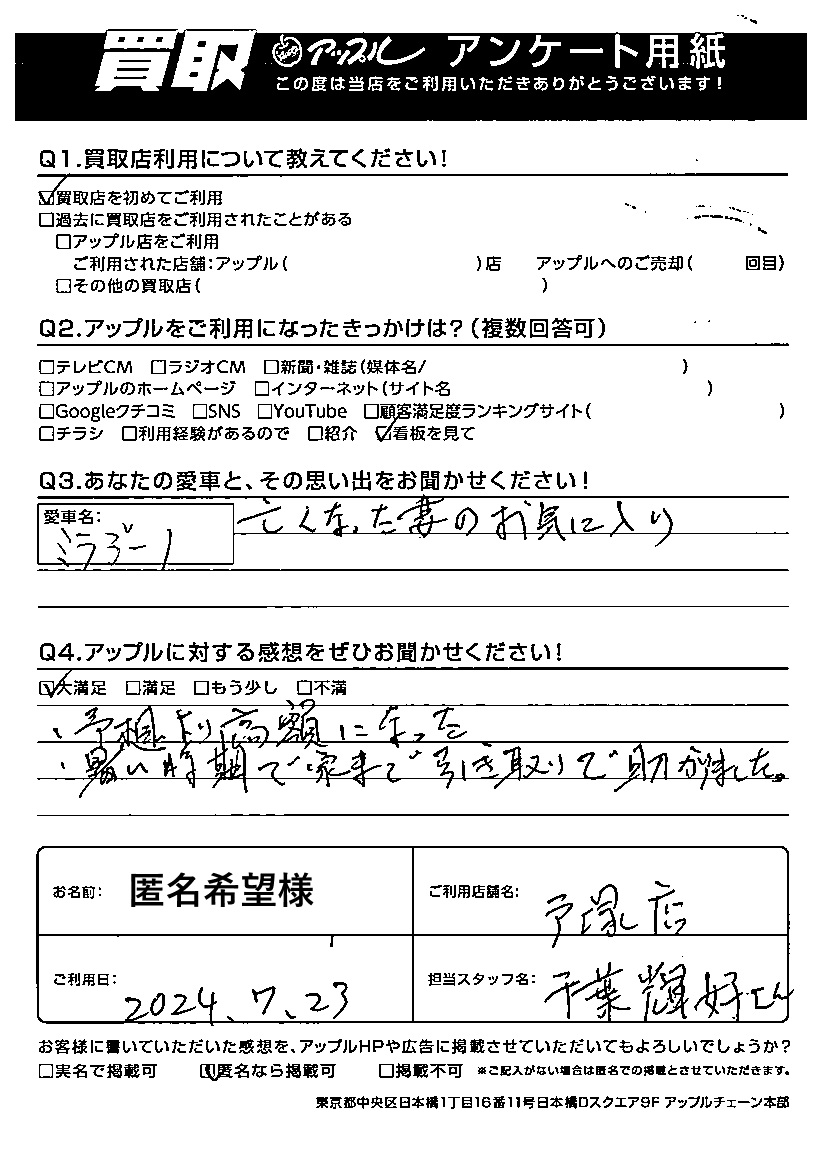 買取 アップル アンケート用紙
この度は当店をご利用いただきありがとうございます!
Q1.買取店利用について教えてください!
☑買取店を初めてご利用
□過去に買取店をご利用されたことがある
□アップル店をご利用
ご利用された店舗:アップル( )店 アップルへのご売却( 回目)
□その他の買取店( )
Q2.アップルをご利用になったきっかけは?(複数回答可)
□テレビCM □ラジオCM □新聞・雑誌(媒体名/ )
□アップルのホームページ □インターネット(サイト名 )
□Googleクチコミ □SNS □YouTube □顧客満足度ランキングサイト( )
□チラシ □利用経験があるので □紹介 ☑看板を見て
Q3.あなたの愛車と、その思い出をお聞かせください!
愛車名:
ミラジーノ 亡くなった妻のお気に入り
Q4.アップルに対する感想をぜひお聞かせください!
☑大満足 □満足 □もう少し □不満
・予想より高額になった
・暑い時期で家まで引き取りで助かりました。
お名前: 匿名希望様 ご利用店舗名: 戸塚店
ご利用日: 2024.7.23 担当スタッフ名: 千葉輝好さん
お客様に書いていただいた感想を、アップルHPや広告に掲載させていただいてもよろしいでしょうか?
□実名で掲載可 ☑匿名なら掲載可 □掲載不可 ※ご記入がない場合は匿名での掲載とさせていただきます。
東京都中央区日本橋1丁目16番11号日本橋Dスクエア9F アップルチェーン本部